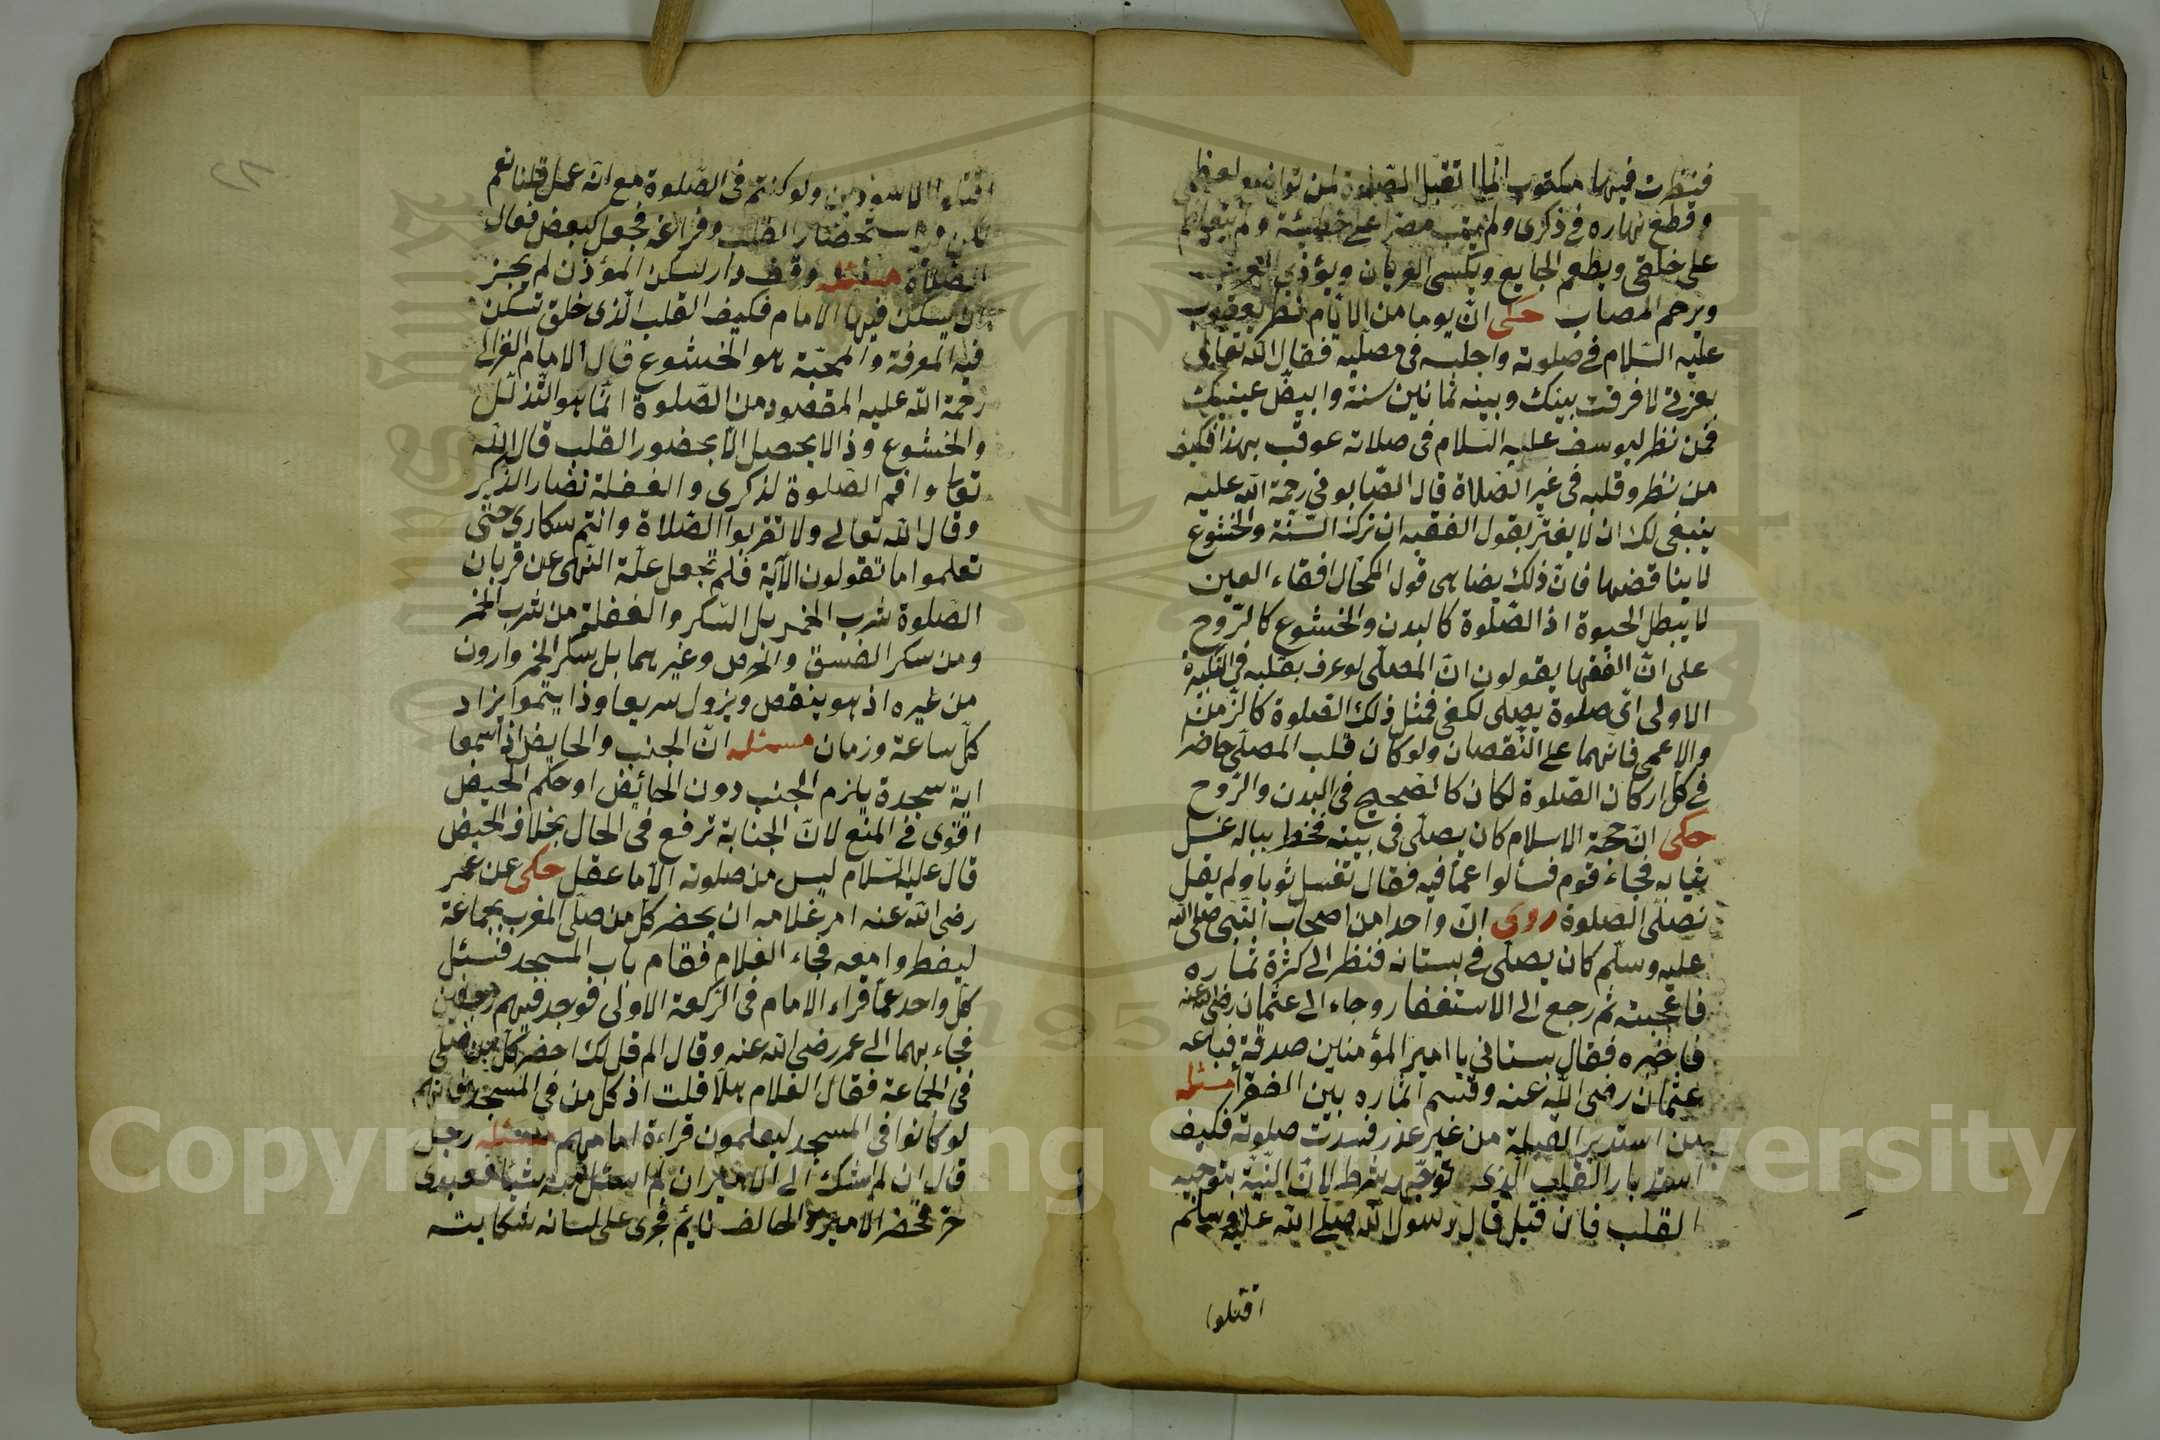 فنظرت فيها مكتوب انما اتقبل الصلوة لمن تواضع لعظمتي
وقطع نهاره في ذكرى ولم يبت مصرا على خطيئة ولم يتعاظم
على خلقى ويطعم الجايع ويكسى العريان ويؤذى الغريب
ويرحم المصاب حكى ان يوما من الايام نظر يعقوب
عليه السلام في صلوته واجلسه في مصليه فقال الله تعالى
بعزتى لا فرقت بينك وبينه ثمانين سنة وابيض عينيك
فمن نظر ليوسف عليه السلام فى صلاته عوقب بهذا فكيف
من نظر وقلبه فى غير الصلاة قال الصابونى رحمة الله عليه
ينبغى لك ان لا يغتر بقول الفقيه ان ترك السنة والخشوع
لا يناقضها فان ذلك يضاهى قول الكحال افقاء العين
لا يبطل الحيوة اذ الصلوة كالبدن والخشوع كالروح
على ان الفقها يقولون ان المصلى لو عرف بقلبه فى التكبيرة
الاولى اى صلوة يصلى لكفى فمثل ذلك الصلوة كالزمن
والاعمى فانهما على النقصان ولو كان قلب المصلى حاضر
فى كل اركان الصلوة لكان كالصحيح فى البدن والروح
حكى ان حجة الاسلام كان يصلى فى بيته فخطر بباله غسل
ثيابه فجاء قوم فسألوا عما فيه فقال تغسل ثوبا ولم يقل
نصلى الصلوة روى ان واحدا من اصحاب النبى صلى الله
عليه وسلم كان يصلى فى بستانه فنظر الى كثرة ثماره
فاعجبته ثم رجع الى الاستغفار وجاء الى عثمان رضى الله عنه
فاخبره فقال بستانى يا امير المؤمنين صدقة فباعه
عثمان رضى الله عنه وقسم اثماره بين الفقرأ مسئلة
من استدبر القبلة من غير عذر فسدت صلوته فكيف
استدبار القلب الذى توجهه شرط لان النية بتوجيه
القلب فان قيل قال رسول الله صلى الله عليه وسلم
اقتلوا
اقتلوا الاسودين ولو كنتم فى الصلوة مع انه عمل قلنا نعم
لكن باستحضار القلب وفراغه فجعل كبعض فعال
الصلاة مسئلة وقف دار سكن المؤذن لم يجز
ان يسكن فيها الامام فكيف القلب الذى خلق تسكن
فيه المعرفة والمحبة هو الخشوع قال الامام الغزالى
رحمة الله عليه المقصود من الصلوة انما هو التذلل
والخشوع وذا لا يحصل الا بحضور القلب قال الله
تعالى واقم الصلوة لذكرى والغفلة نضار الذكر
وقال الله تعالى ولا تقربوا الصلاة وانتم سكارى حتى
تعلموا ما تقولون الآية فلم تجعل علة النهى عن قربان
الصلوة شرب الخمر بل السكر والغفلة من شرب الخمر
ومن سكر الفسق والحرص وغيرهما بل سكر الخمر وارون
من غيره اذ هو ينقص ويزول سريعا وذا ينموا يزاد
كل ساعة وزمان مسئلة ان الجنب والحايض اذا سمعا
اية سجدة يلزم الجنب دون الحائض او حكم الحيض
اقوى فى المنع لان الجنابة ترفع فى الحال بخلاف الحيض
قال عليه السلام ليس من صلوته الا ما عقل حكى عن عمر
رضى الله عنه امر غلامه ان يحضر كل من صلى المغرب بجماعة
ليفطروا معه فجاء الغلام فقام باب المسجد فسئل
كل واحد عما قراء الامام فى الركعة الاولى فوجد فيهم رجلين
فجاء بهما الى عمر رضى الله عنه وقال الم قل لك احضر كل من صلى
فى الجماعة فقال الغلام هلا قلت اذ كل من فى المسجد فانهم
لو كانوا فى المسجد ليعلمون قراءة امامهم مسئلة رجل
قال ان لم اشك الى الامير ان لم اسئل منه شيا فعبدى
حر فحضر الامير والحالف نايم فجرى على لسانه شكايته